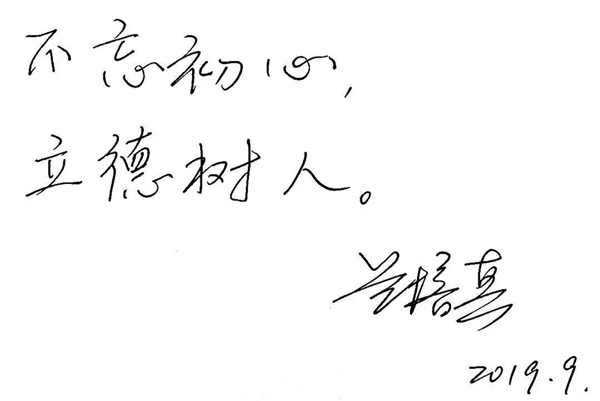 不忘初心,
立德树人。
兰培真
2019.9.